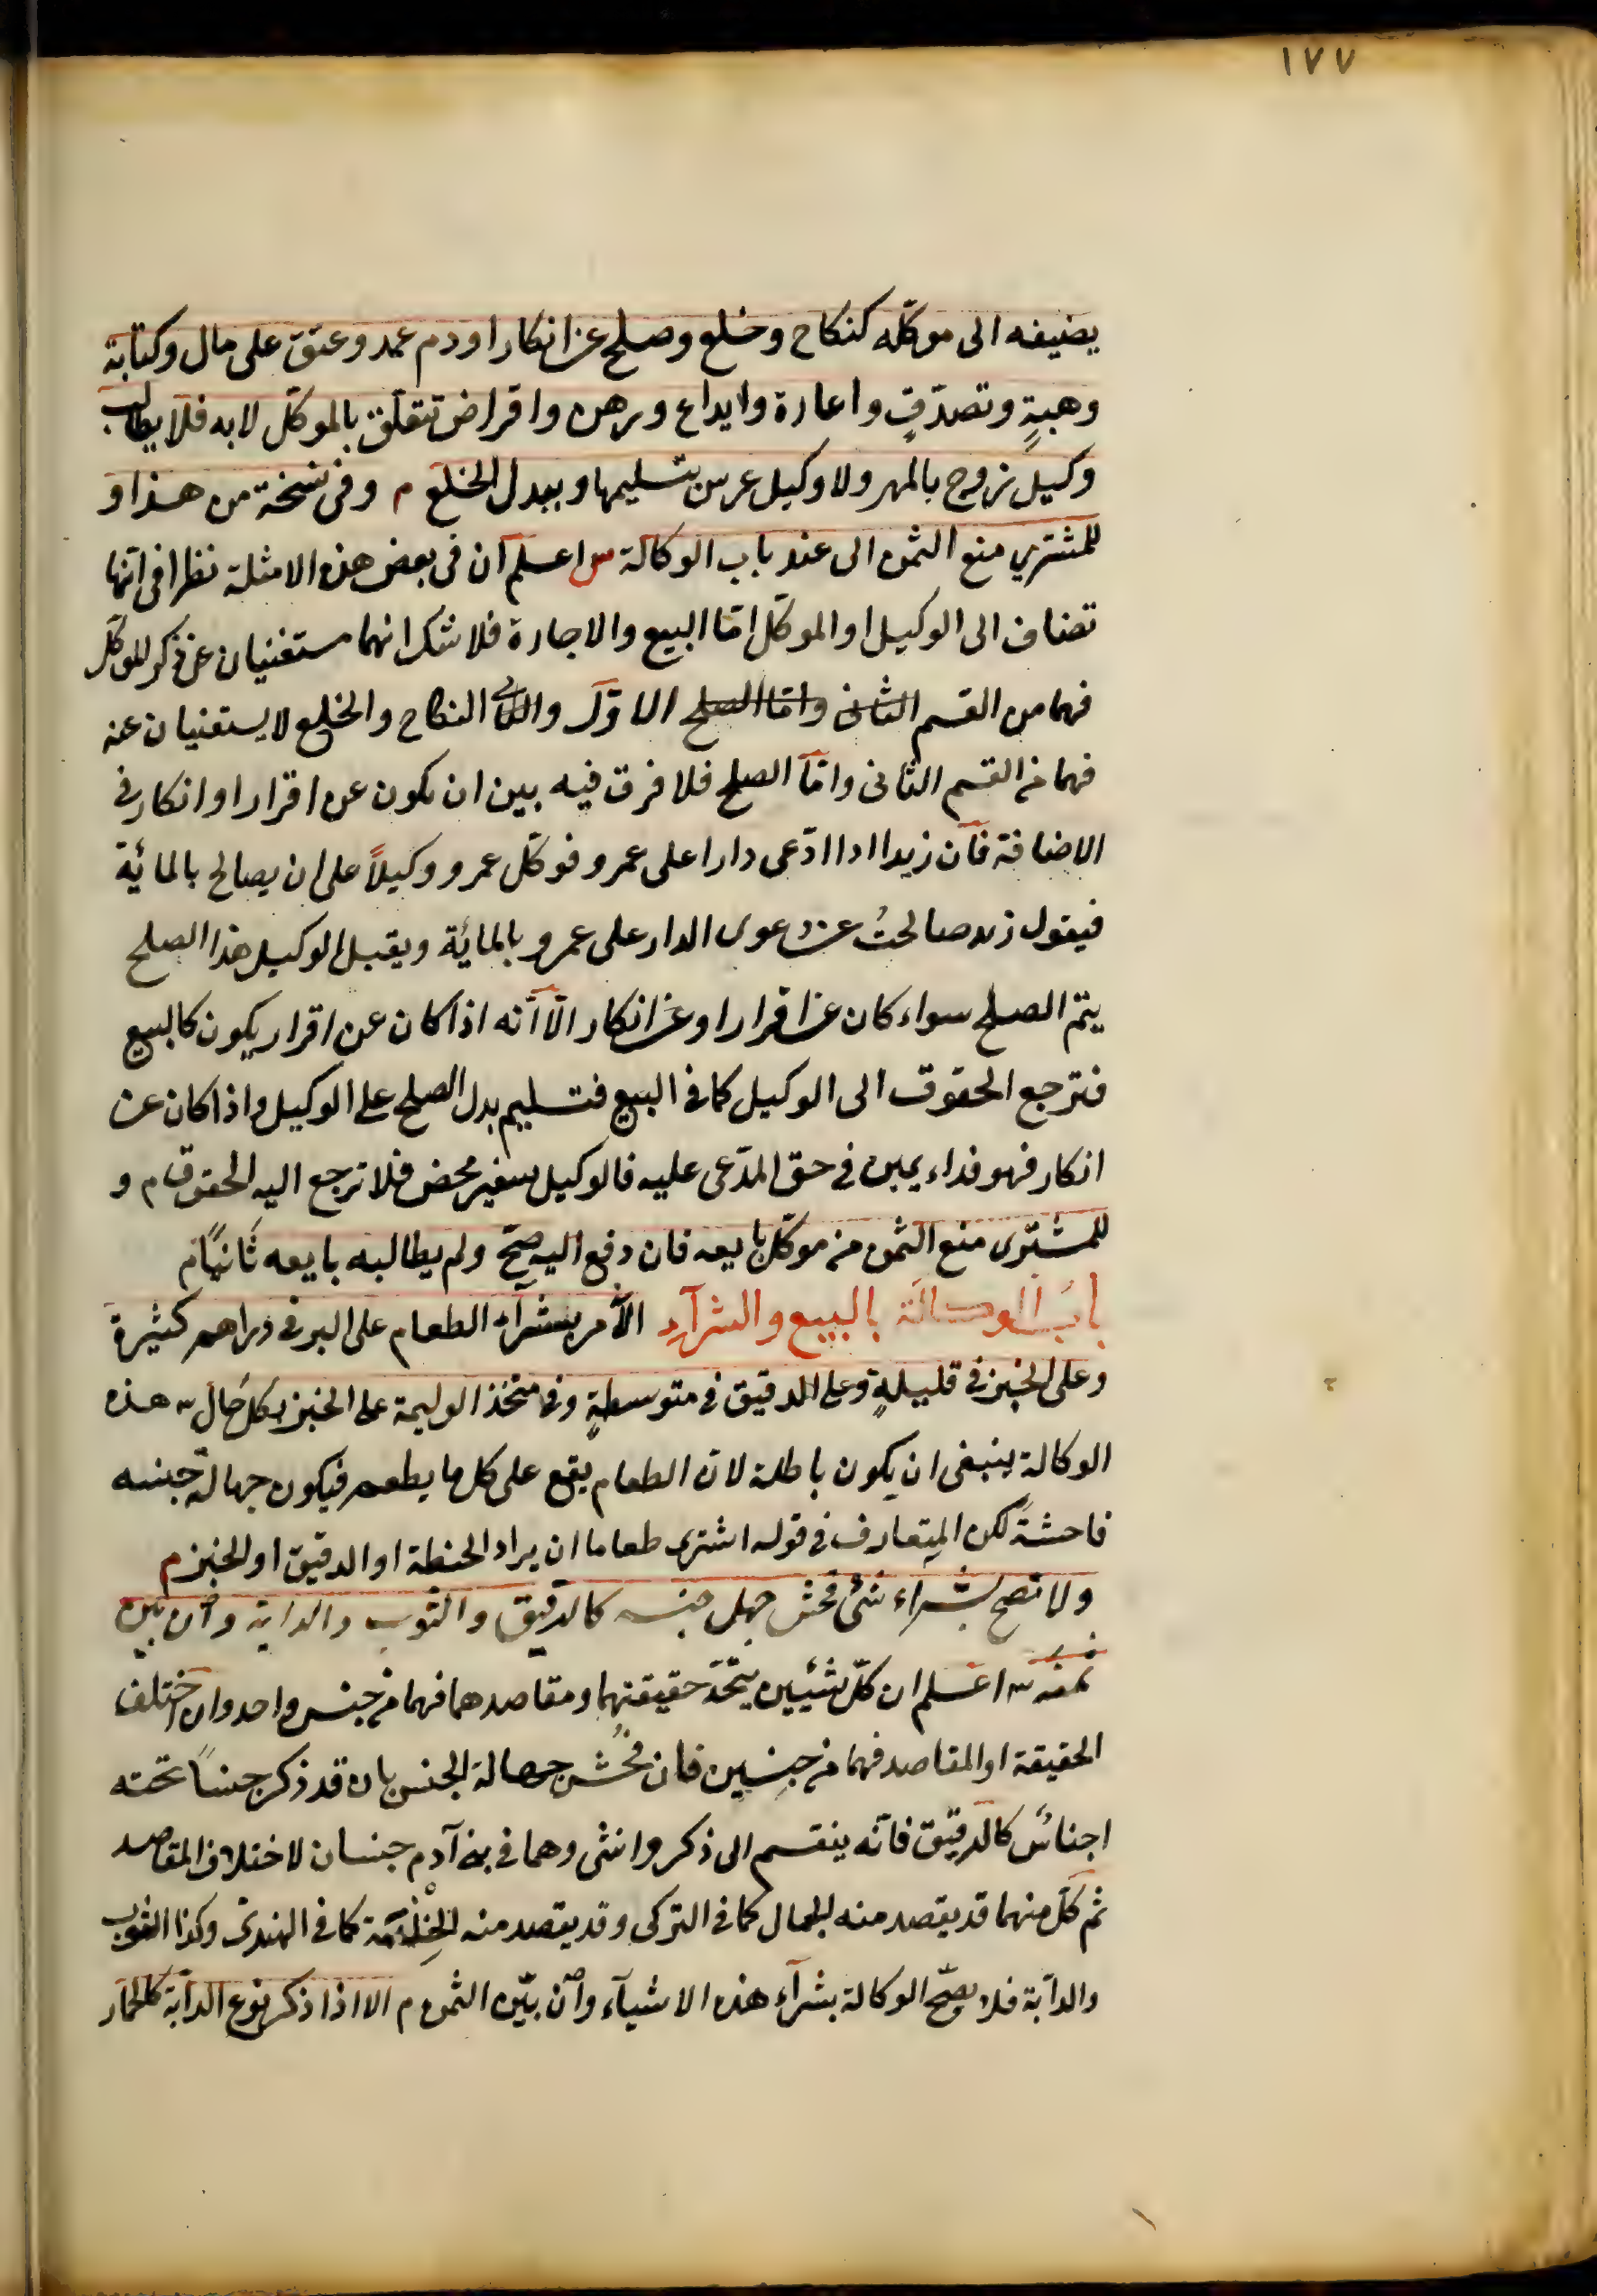 ١٧٧
يضيفه الى موكّله كنكاح وخلع وصلح عن انكار او دم عمد وعتق على مال وكتابة
وهبةٍ وتصدّقٍ واعارة وايداع ورهن واقراض تتعلق بالموكّل لا به فلا يطالب
وكيل زوج بالمهر ولا وكيل عرس بتسليمها وببدل الخلع م وفى نسخة من هذا و
للمشترى منع الثمن الى عند باب الوكالة س اعلم ان فى بعض هذه الامثلة نظرا فى انّها
تضاف الى الوكيل او الموكّل امّا البيع والاجارة فلا شك انهما مستغنيان عن ذكر الموكّل
فهما من القسم الثانى وامّا الصلح الاوّل والنكاح والخلع لا يستغنيان عنه
فهما من القسم الثانى وامّا الصلح فلا فرق فيه بين ان يكون عن اقرار او انكار فى
الاضافة فانّ زيدا اذا ادّعى دارا على عمرو فوكّل عمرو وكيلاً على ان يصالح بالمائة
فيقول زيد صالحتُ عن دعوى الدار على عمرو بالمائة ويقبل الوكيل هذا الصلح
يتمّ الصلح سواء كان عن اقرار او عن انكار الّا انّه اذا كان عن اقرار يكون كالبيع
فترجع الحقوق الى الوكيل كما فى البيع فتسليم بدل الصلح على الوكيل واذا كان عن
انكار فهو فداء يمين فى حق المدّعى عليه فالوكيل سفير محض فلا ترجع اليه الحقوق م و
للمشترى منع الثمن من موكّل بايعه فان دفع اليه صحّ ولم يطالبه بايعه ثانيًا م
بابُ الوكالة بالبيع والشرآء الأمر بشرآء الطعام على البر فى دراهم كثيرة
وعلى الخبز فى قليلةٍ وعلى الدقيق فى متوسطةٍ وفى متّخذ الوليمة على الخبز بكل حال س هذه
الوكالة ينبغى ان يكون باطلة لان الطعام يقع على كل ما يطعم فيكون جهالة جنسه
فاحشةً لكن المتعارف فى قوله اشترى طعاما ان يراد الحنطة او الدقيق او الخبز م
ولا تصح بشراء شئ فحش جهل جنسه كالرقيق والثوب والدابة وان بين
ثمنه س اعلم ان كلّ شيئين يتّحد حقيقتهما ومقاصدهما فهما من جنس واحد وان اختلف
الحقيقة او المقاصد فهما من جنسين فان فحُش جهالة الجنس بان قد ذكر جنسًا تحته
اجناسٌ كالرقيق فانّه ينقسم الى ذكر وانثى وهما فى بنى آدم جنسان لاختلاف المقاصد
ثم كلّ منهما قد يقصد منه الجمال كما فى التركى وقد يقصد منه الخِدْمَة كما فى الهندىّ وكذا الثوب
والدابّة فلا يصحّ الوكالة بشرآء هذه الاشيآء وان بيّن الثمن م الا اذا ذكر نوع الدابّة كالحمار